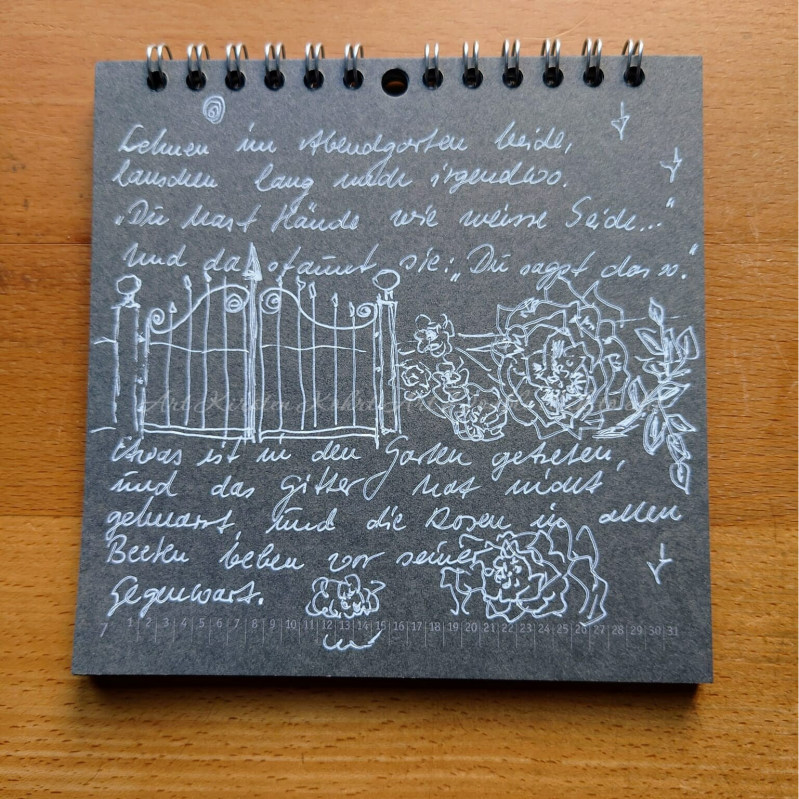 Lehnen im Abendgarten beide,
lauschen lang nach irgendwo.
„Du hast Hände wie weisse Seide..."
Und da staunt sie: „Du sagst das so."
Etwas ist in den Garten getreten,
und das Gitter hat nicht
geknarrt und die Rosen in allen
Beeten beben vor seiner
Gegenwart.
7 1 2 3 4 5 6 7 8 9 10 11 12 13 14 15 16 17 18 19 20 21 22 23 24 25 26 27 28 29 30 31